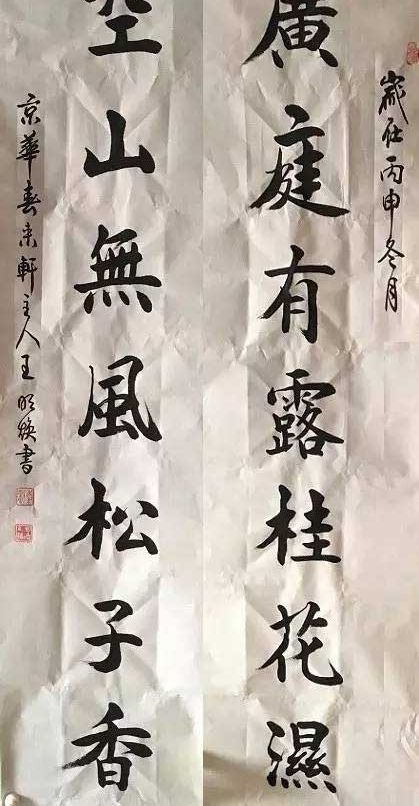 歲在丙申冬月
廣庭有露桂花濕
空山無風松子香
京華春来軒主人王明焕書